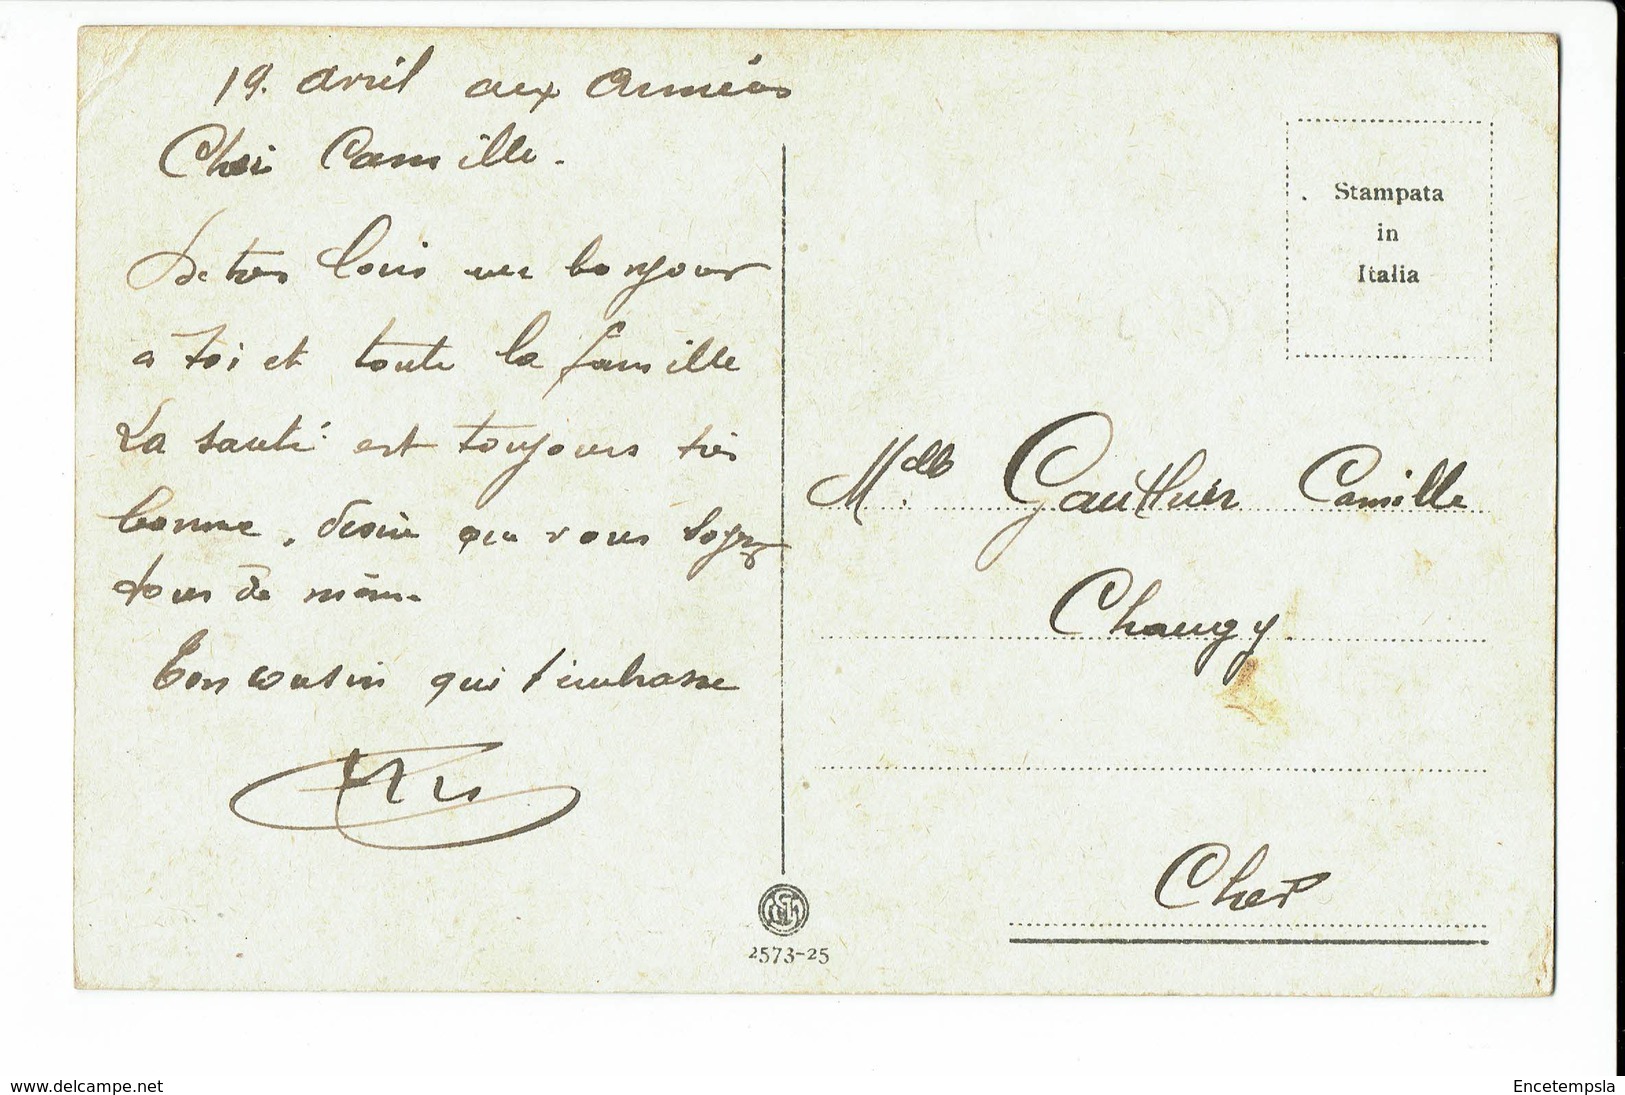 19. avril aux Armées
Cher Camille.
De très loin un bonjour
a toi et toute la famille
La santé est toujours très
bonne, désire que vous soyez
tous de même
Ton cousin qui t'embrasse
Stampata
in
Italia
Mdlle Gauthier Camille
Chaugy
Cher
2573-25
www.delcampe.net
Encetempsla